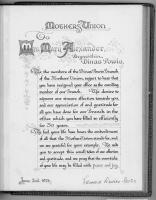 MOTHERS' UNION
To
Mrs. Mary Alexander,
Dinas Powis.
We the members of the Dinas Powis Branch
of the Mothers' Union, regret to hear that
you have resigned your office as the enrolling
member of our Branch. We desire to
express our sincere affection towards you,
and our appreciation of and gratitude for
all you have done for our Branch in the
office which you have filled so efficiently
for 30 years.
We feel your life has been the embodiment
of all that the Mothers' Union stands for, and
are grateful for your example. We ask
you to accept this small token of our affection
and gratitude, and we pray that the remainder
of your life may be filled with peace and joy.
June 2nd,